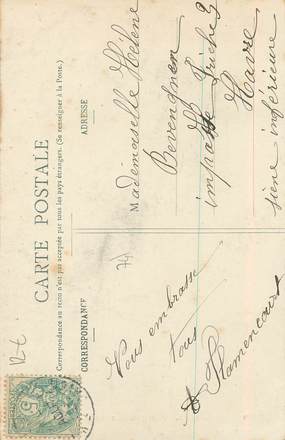 CARTE POSTALE
Correspondance au recto n'est pas acceptée par tous les pays étrangers. (Se renseigner à la Poste.)
CORRESPONDANCE
ADRESSE
Vous embrasse
tous
Flamencourt
Mademoiselle Hélène
impasse
Havre
seine inférieure